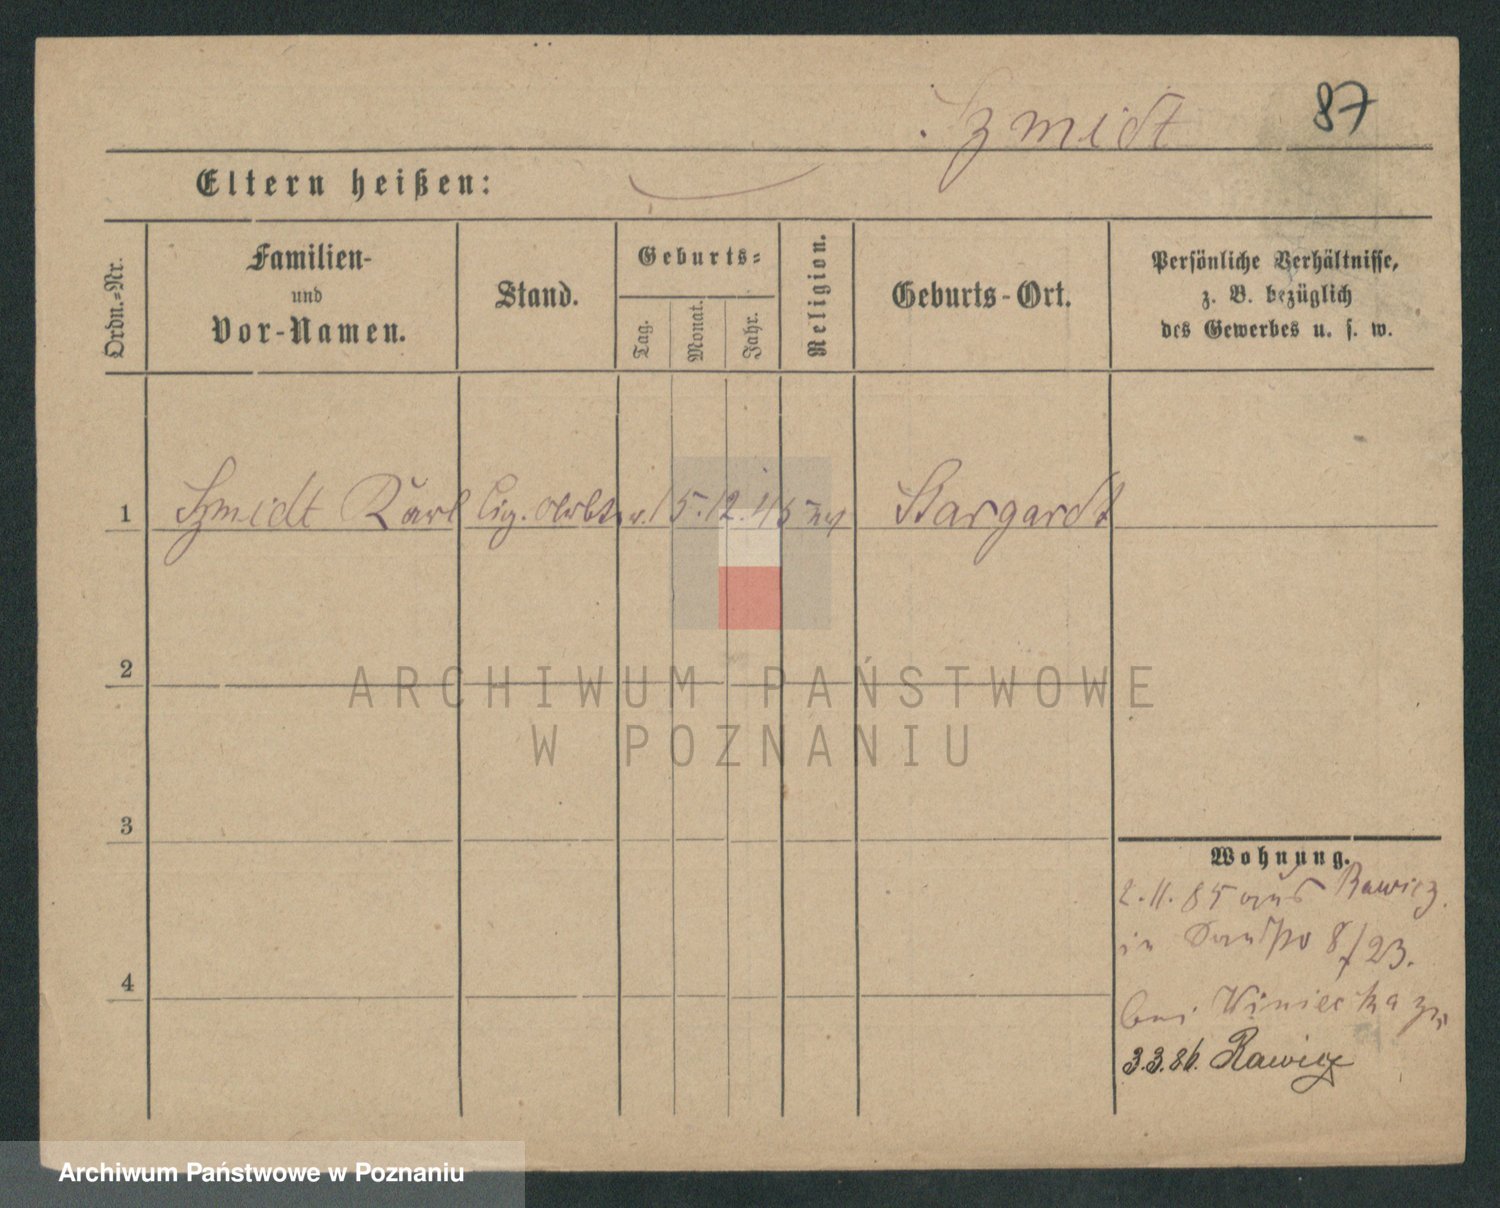 Szmidt 87
Eltern heißen:
Ordn.=Nr.
Familien-
und
Vor-Namen.
Stand.
Geburts=
Tag.
Monat.
Jahr.
Religion.
Geburts-Ort.
Persönliche Verhältnisse,
z. B. bezüglich
des Gewerbes u. s. w.
1 Szmidt Karl Cig. Arbtr. 15.12.45 ev Stargardt
2
3
4
Wohnung.
2.11.85 aus Rawicz.
in 8/23.
bei Winiecka
3.3.86. Rawicz
ARCHIWUM PAŃSTWOWE
W POZNANIU
Archiwum Państwowe w Poznaniu